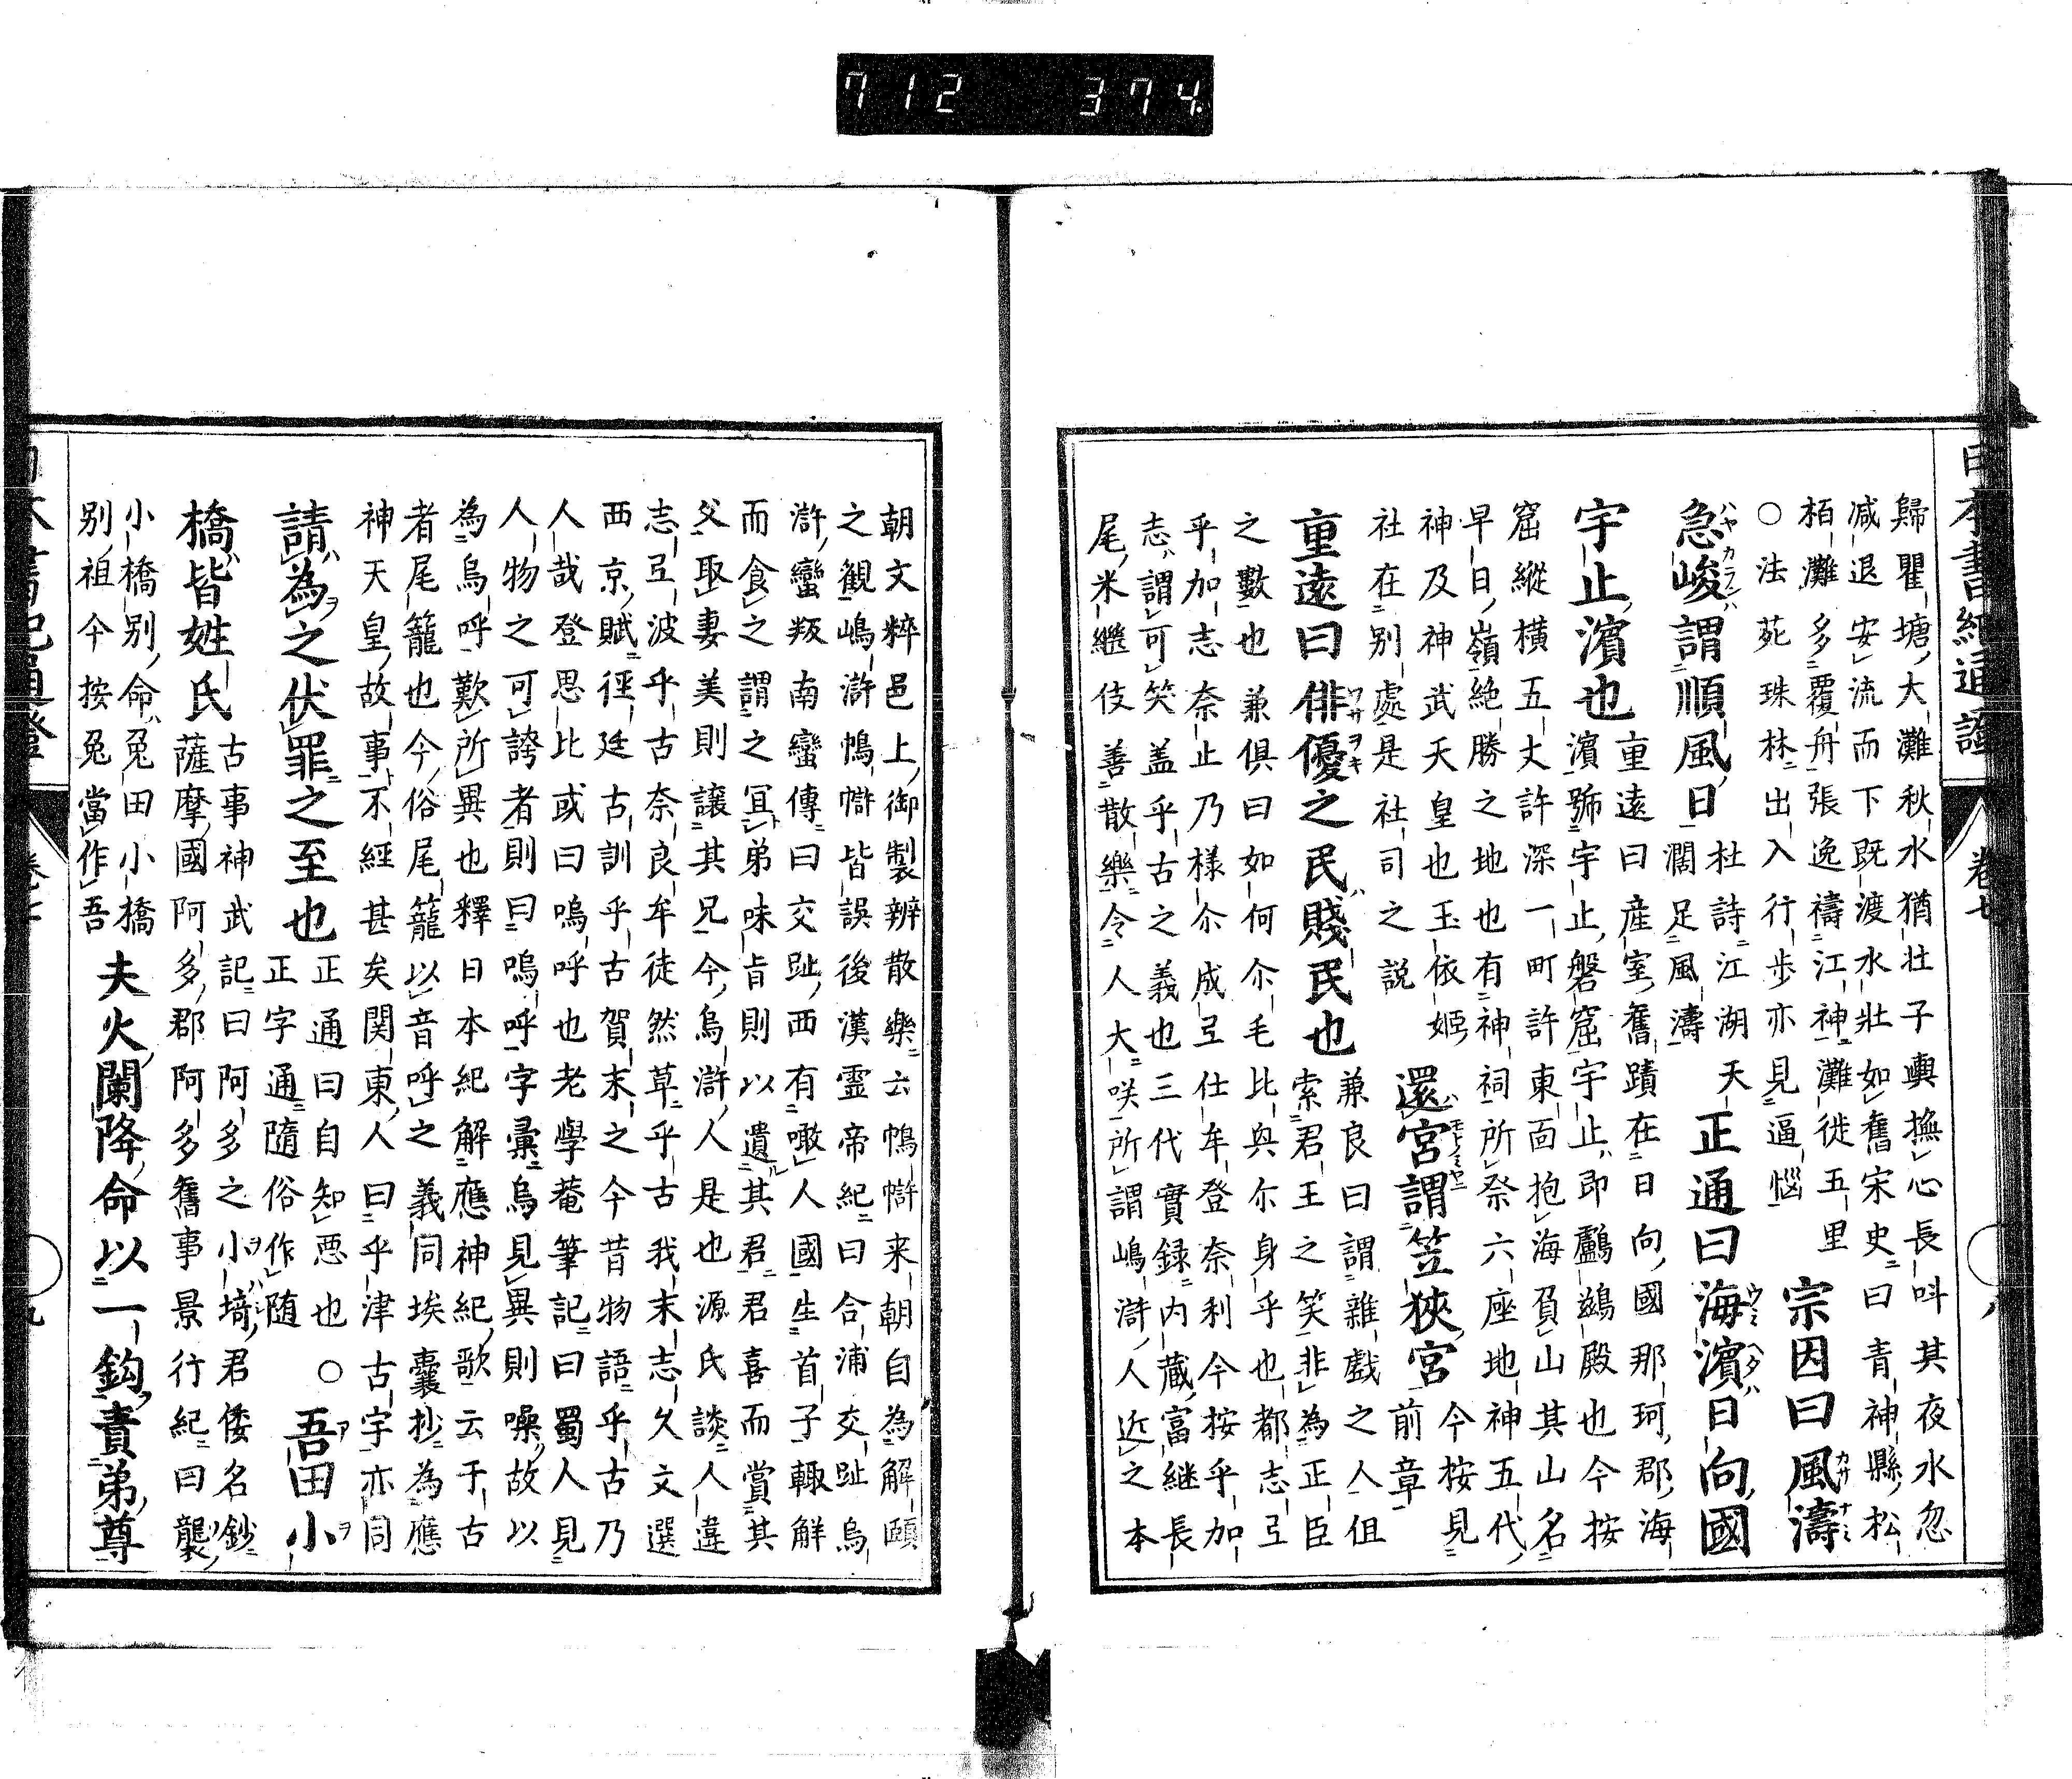 712 374
日本書紀通證
卷七
八
歸瞿塘大灘秋水猶壯子輿撫心長呌其夜水忽
減退安流而下既渡水壯如舊宋史曰青神縣松
栢灘多覆舟張逸禱江神灘徙五里
宗因曰風濤
○法苑珠林出入行歩亦見逼惱
正通曰海濱日向國
急峻謂順風日
杜詩江湖天
濶足風濤
宇止濱也
重遠曰產室舊蹟在日向國那珂郡海
濱號宇止磐窟宇止即鸕鷀殿也今按
窟縱横五丈許深一町許東面抱海負山其山名
早日嶺絶勝之地也有神祠所祭六座地神五代
神及神武天皇也玉依姬
社在别處是社司之説
還宮謂笠狹宮
今按見
前章
重遠曰俳優之民賤民也
兼良曰謂雜戲之人伹
索君王之笑非為正臣
之數也兼倶曰如何尓毛比與尓身乎也都志弖
乎加志奈止乃樣尓成弖仕牟登奈利今按乎加
志謂可笑盖乎古之義也三代實録内藏富継長
尾米繼伎善散樂令人大咲所謂嶋滸人近之本
朝文粹邑上御製辨散樂云鳴滸来朝自為解頤
之觀嶋滸鳴㠊皆誤後漢霊帝紀曰合浦交趾烏
滸蠻叛南蠻傳曰交趾西有噉人國生首子輙解
而食之謂之冝弟味㫖則以遺其君君喜而賞其
父取妻美則讓其兄今烏滸人是也源氏談人違
志弖波乎古奈良牟徒然草乎古我末志久文選
西京賦徑廷古訓乎古賀末之今昔物語乎古乃
人哉登思比或曰嗚呼也老學菴筆記曰蜀人見
人物之可誇者則曰嗚呼字彙烏見異則噪故以
為烏呼歎所異也釋日本紀解應神紀歌云于古
者尾籠也今俗尾籠以音呼之義同埃囊抄為應
神天皇故事不經甚矣関東人曰乎津古字亦同
請為之伏罪之至也
正通曰自知悪也○
正字通隨俗作随
吾田小
橋皆姓氏
古事神武記曰阿多之小埼君倭名鈔
薩摩國阿多郡阿多舊事景行紀曰襲
小橋别命兔田小橋
别祖今按兔當作吾
夫火闌降命以一鈎責弟尊
日本書紀通證
卷七
九